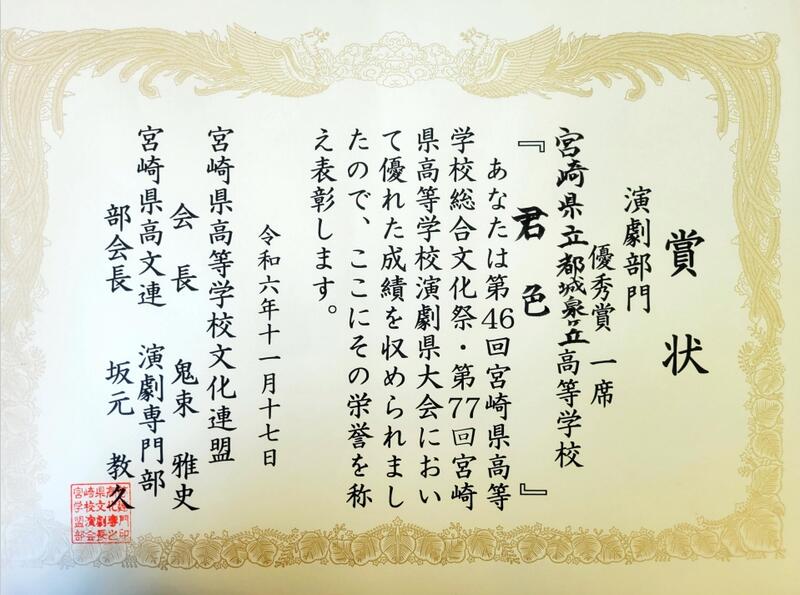 賞状
演劇部門
優秀賞 一席
宮崎県立都城泉ヶ丘高等学校
『君色』
あなたは第46回宮崎県高等
学校総合文化祭・第77回宮崎
県高等学校演劇県大会におい
て優れた成績を収められまし
たので、ここにその栄誉を称
え表彰します。
令和六年十一月十七日
宮崎県高等学校文化連盟
会長 鬼束 雅史
宮崎県高文連 演劇専門部
部会長 坂元 教久